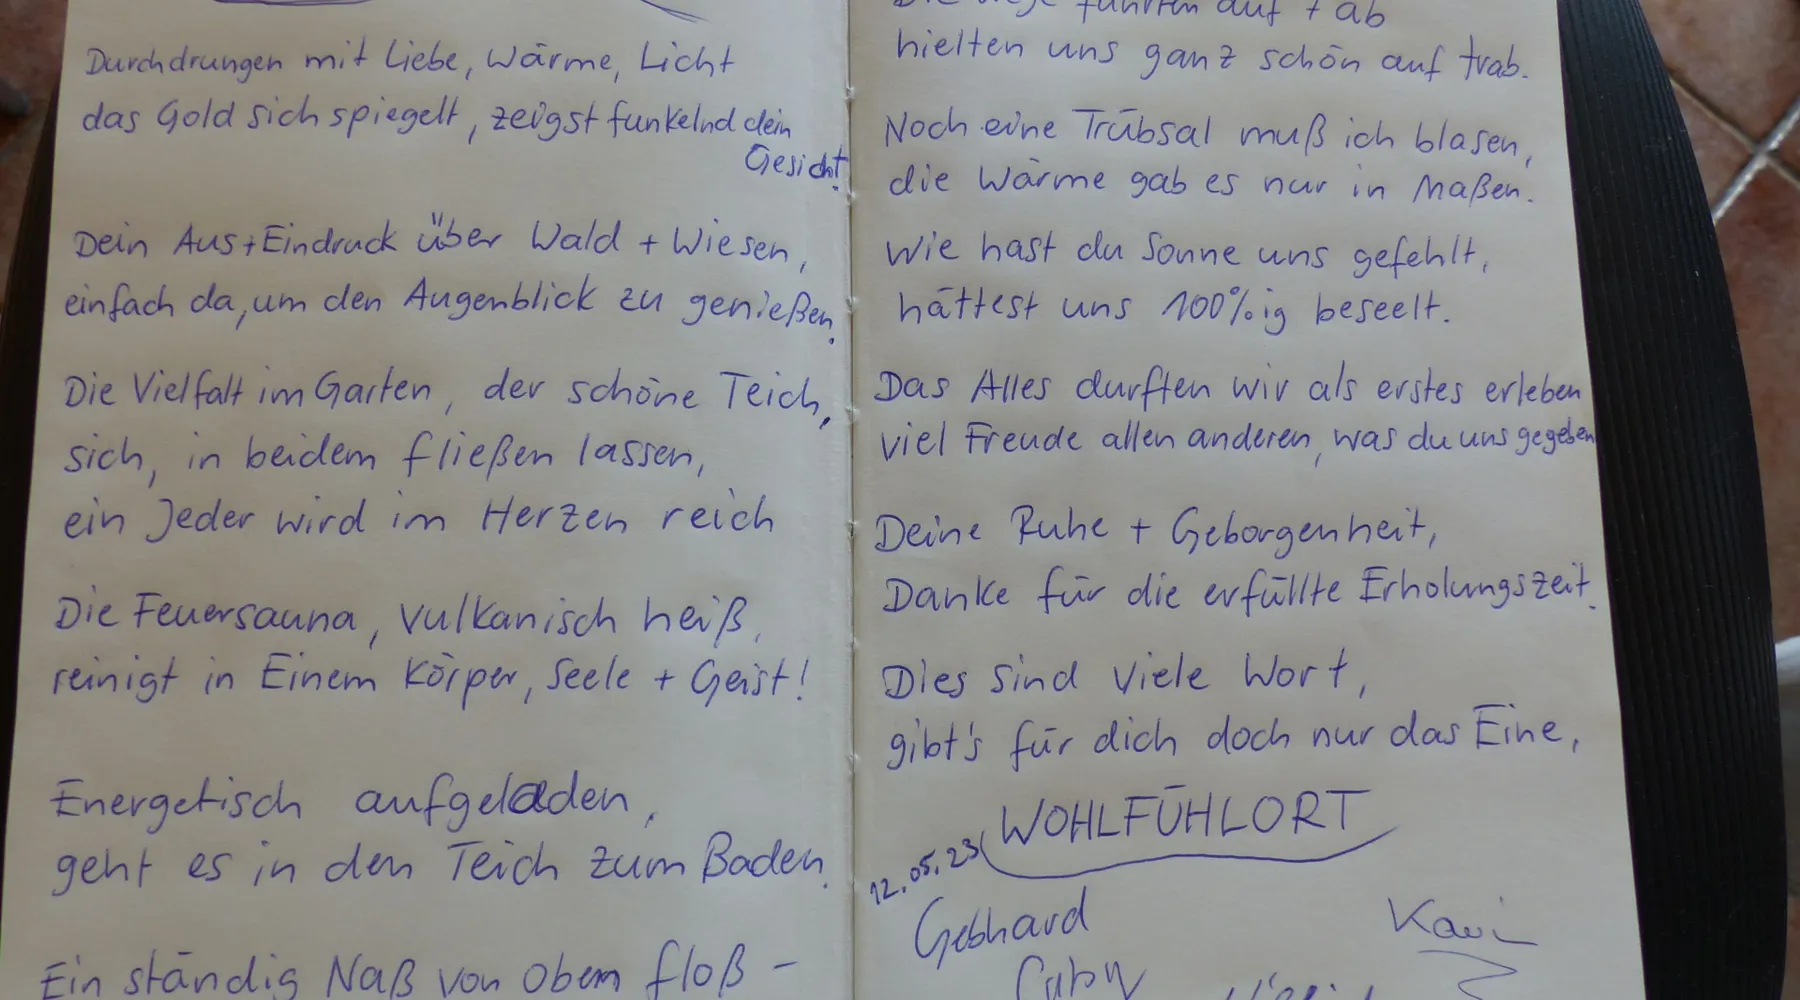 Durchdrungen mit Liebe, Wärme, Licht
das Gold sich spiegelt, zeigst funkelnd dein
Gesicht!
Dein Aus+Eindruck über Wald + Wiesen,
einfach da, um den Augenblick zu genießen.
Die Vielfalt im Garten, der schöne Teich,
sich, in beidem fließen lassen,
ein Jeder wird im Herzen reich
Die Feuersauna, vulkanisch heiß,
reinigt in Einem Körper, Seele + Geist!
Energetisch aufgeladen,
geht es in den Teich zum Baden.
Ein ständig Naß von Oben floß -
Die Wege führten auf + ab
hielten uns ganz schön auf trab.
Noch eine Trübsal muß ich blasen,
die Wärme gab es nur in Maßen.
Wie hast du Sonne uns gefehlt,
hättest uns 100%ig beseelt.
Das Alles durften wir als erstes erleben
viel Freude allen anderen, was du uns gegeben
Deine Ruhe + Geborgenheit,
Danke für die erfüllte Erholungszeit.
Dies sind viele Wort,
gibt's für dich doch nur das Eine,
WOHLFÜHLORT
12.05.23
Gebhard